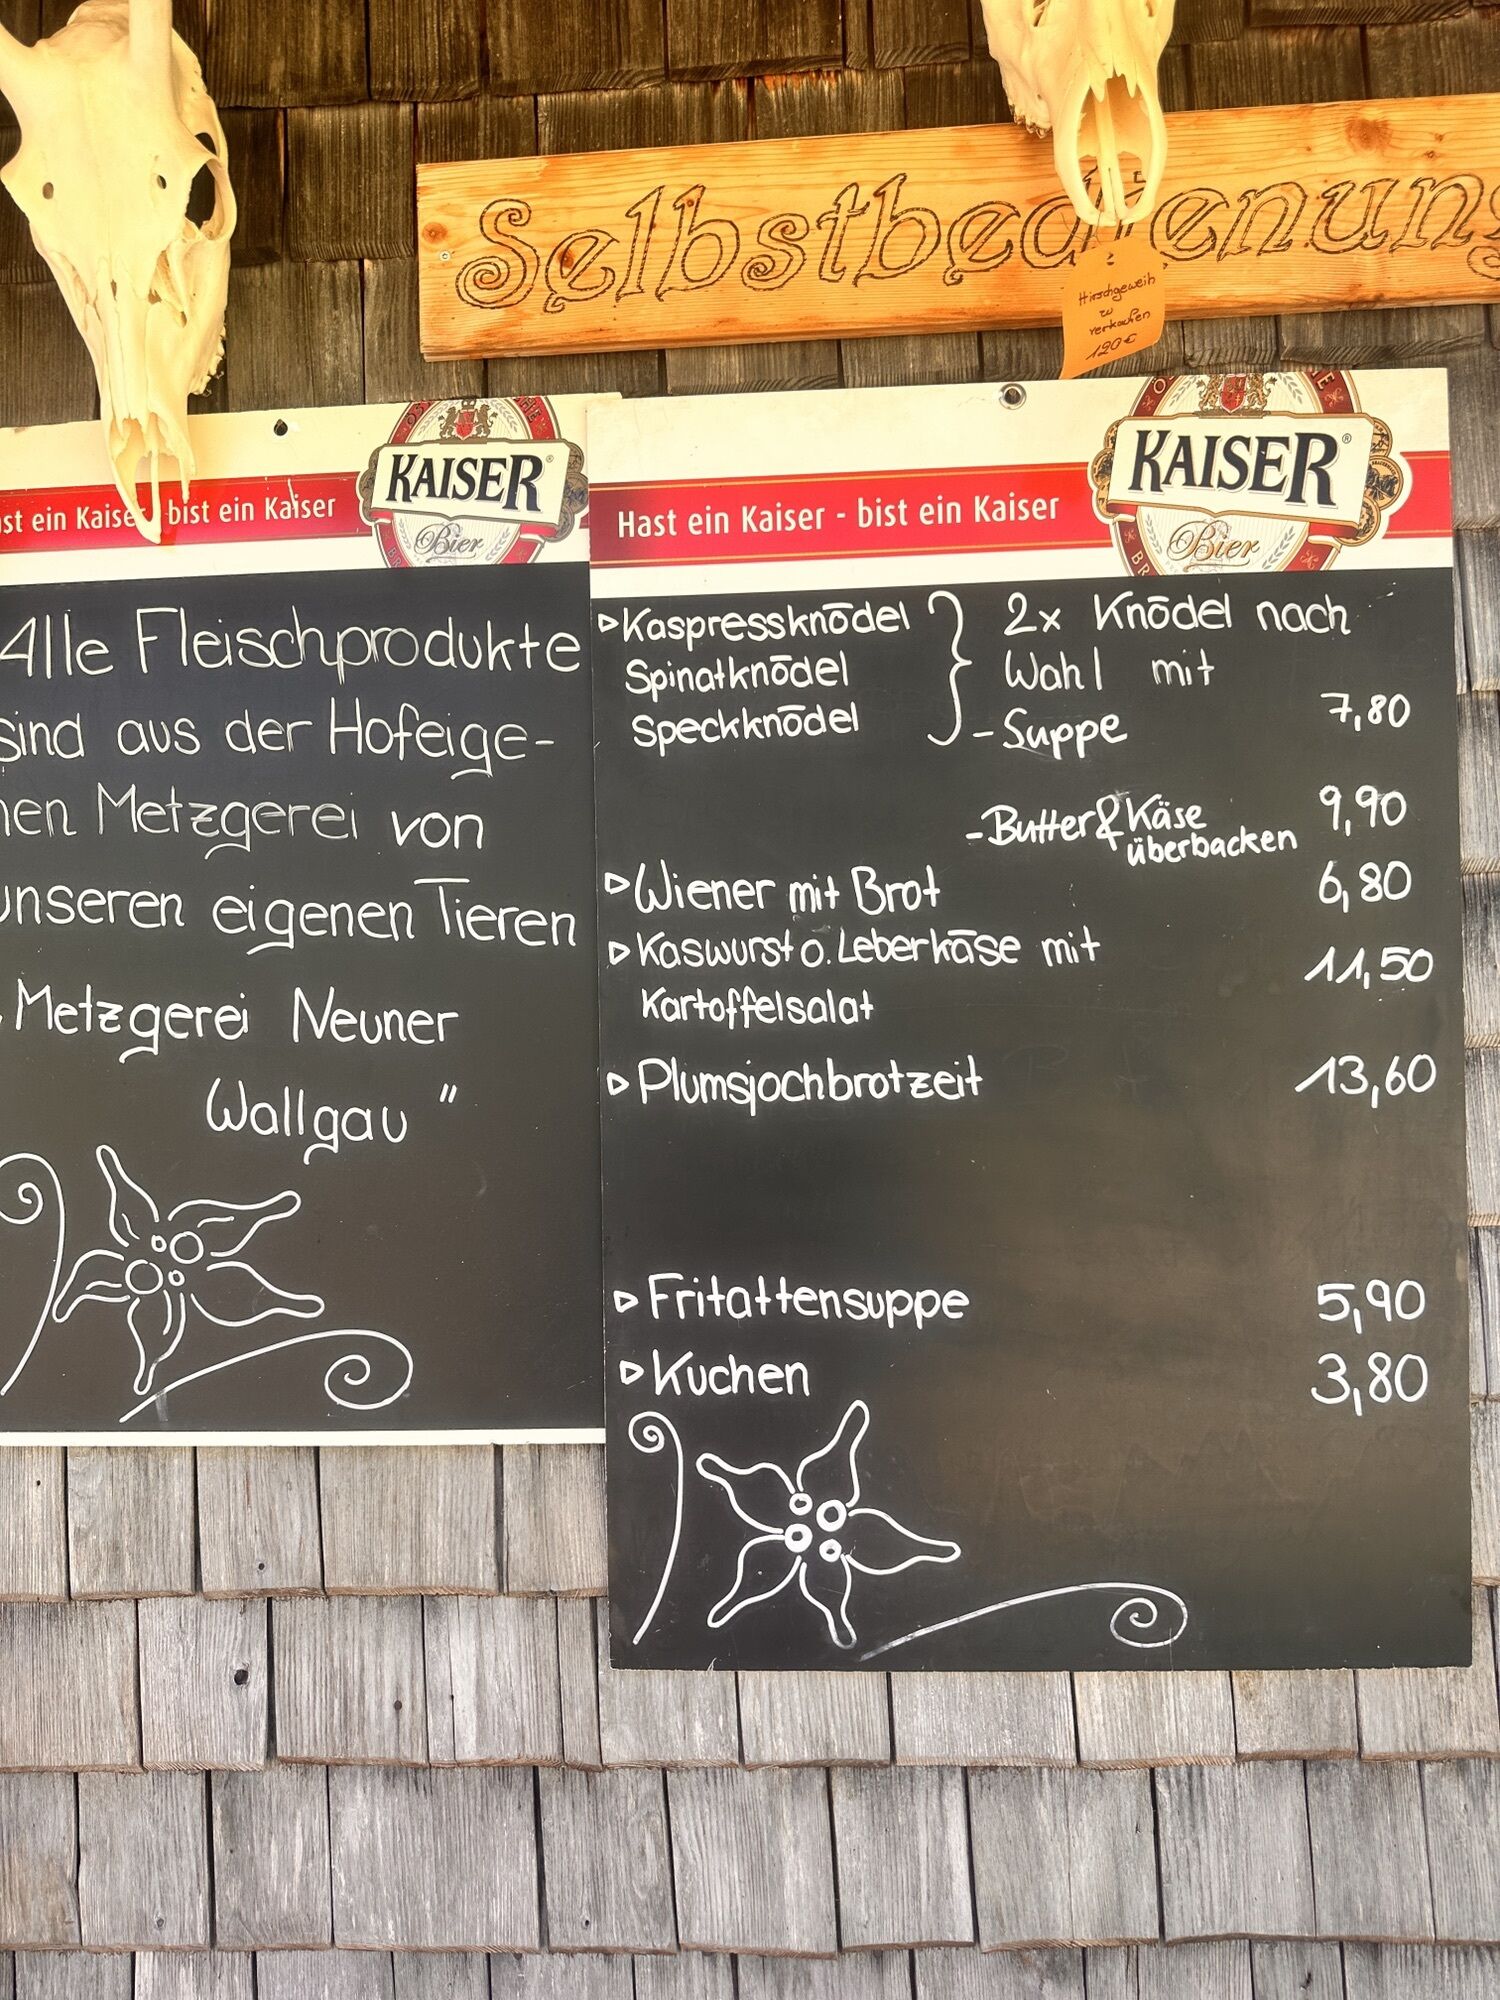 Selbstbedienung
Hirschgeweih
zu
verkaufen
120€
KAISER
Bier
ein Kaiser - bist ein Kaiser
Alle Fleischprodukte
sind aus der Hofeige-
nen Metzgerei von
unseren eigenen Tieren
Metzgerei Neuner
Wallgau "
KAISER
Bier
Hast ein Kaiser - bist ein Kaiser
▹Kaspressknödel } 2x Knödel nach
Spinatknödel Wahl mit
Speckknödel - Suppe 7,80
- Butter & Käse 9,90
überbacken
▹Wiener mit Brot 6,80
▹Kaswurst o. Leberkäse mit 11,50
Kartoffelsalat
▹Plumsjochbrotzeit 13,60
▹Frittattensuppe 5,90
▹Kuchen 3,80